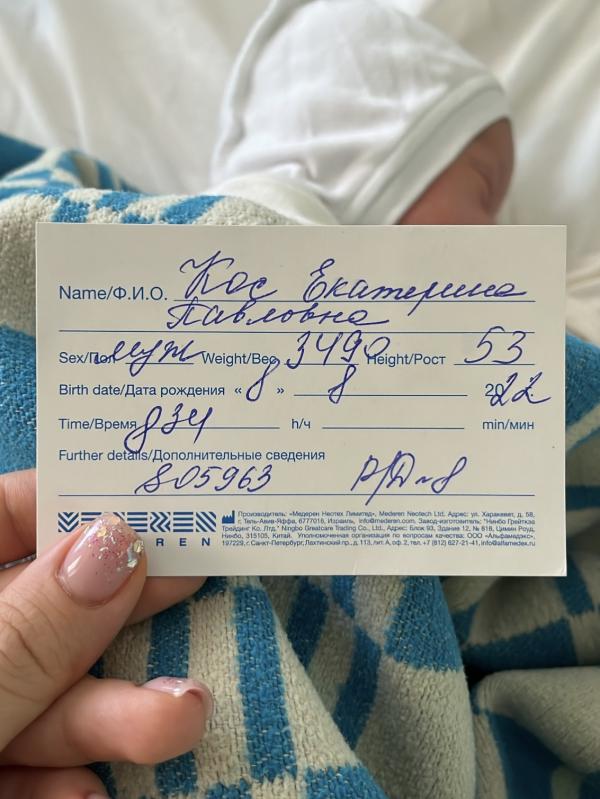 Name/Ф.И.О. Кос Екатерина
Павловна
Sex/Пол муж Weight/Вес 3490 Height/Рост 53
Birth date/Дата рождения « 8 » 8 2022
Time/Время 834 h/ч min/мин
Further details/Дополнительные сведения
805963 Р/Д~8
MEDEREN Производитель: «Медерен Неотех Лимитед», Mederen Neotech Ltd. Адрес: ул. Харакевет, д. 58,
г. Тель-Авив-Яффа, 6777016, Израиль, info@mederen.com. Завод-изготовитель: "Нинбо Грейткэа
Трейдинг Ко. Лтд." Ningbo Greatcare Trading Co., Ltd., Адрес: Блок 93, Здание 12, № 818, Цимин Роуд,
Нинбо, 315105, Китай. Уполномоченная организация по вопросам качества: ООО «Альфамэдэкс»,
197229, г. Санкт-Петербург, Лахтинский пр., д. 113, лит. А, оф. 2, тел. +7 (812) 627-21-41, info@alfamedex.ru